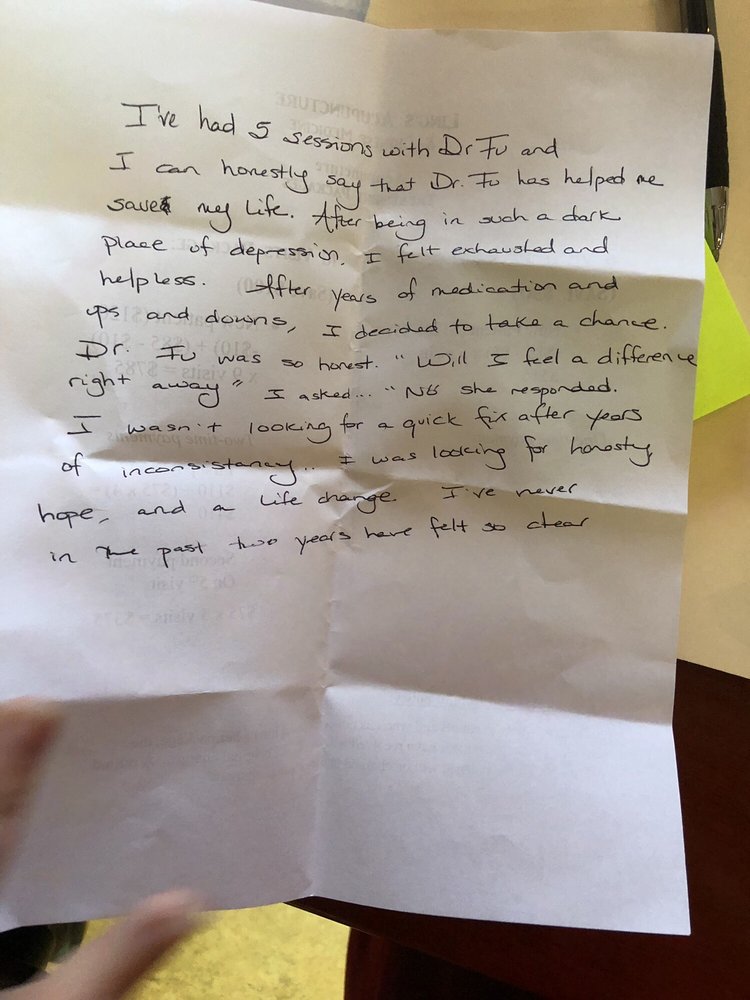 I've had 5 sessions with Dr Fu and
I can honestly say that Dr. Fu has helped me
save my life. After being in such a dark
place of depression, I felt exhausted and
helpless. After years of medication and
ups and downs, I decided to take a chance.
Dr. Fu was so honest. "Will I feel a difference
right away" I asked... "No she responded.
I wasn't looking for a quick fix after years
of inconsistancy... I was looking for honesty,
hope, and a life change. I've never
in the past two years have felt so clear